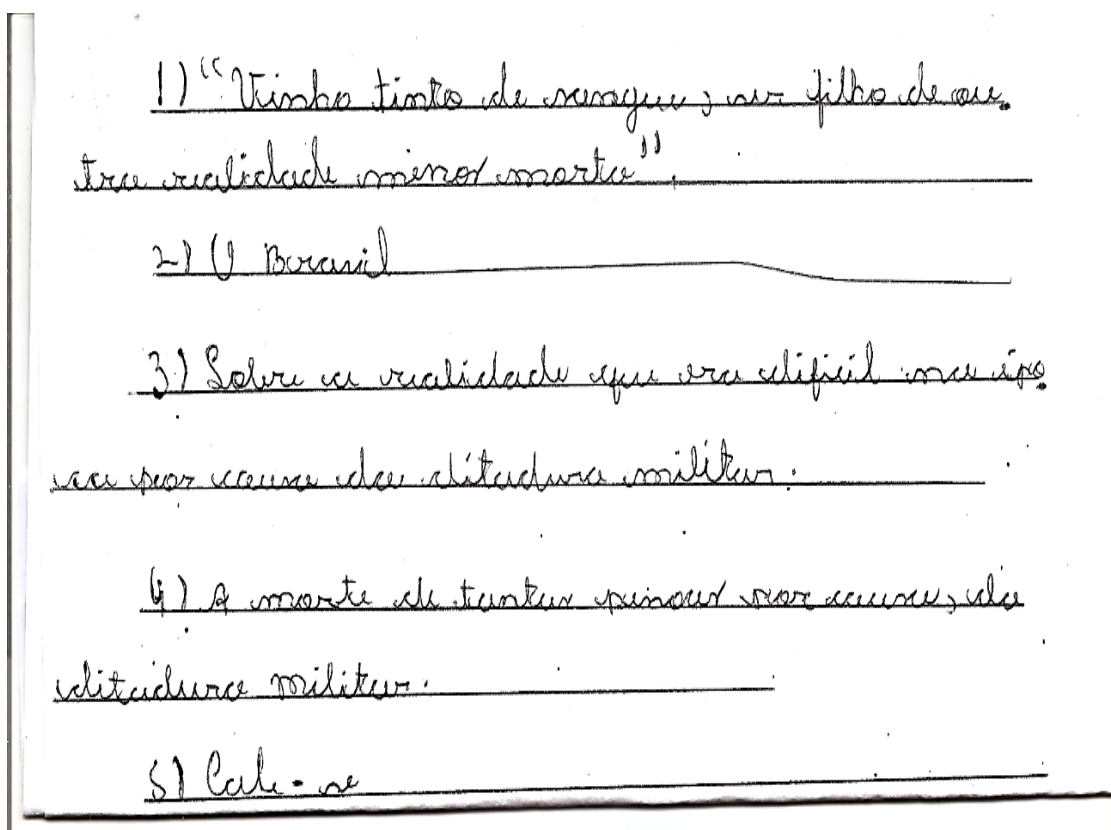 1) "Vinho tinto de sangue, ser filho de ou
tra realidade menos morta".
2) O Brasil
3) Sobre a realidade que era dificil na épo
ca por causa da ditadura militar.
4) A morte de tantas pesoas por causa, da
ditadura militar.
5) Cale-se